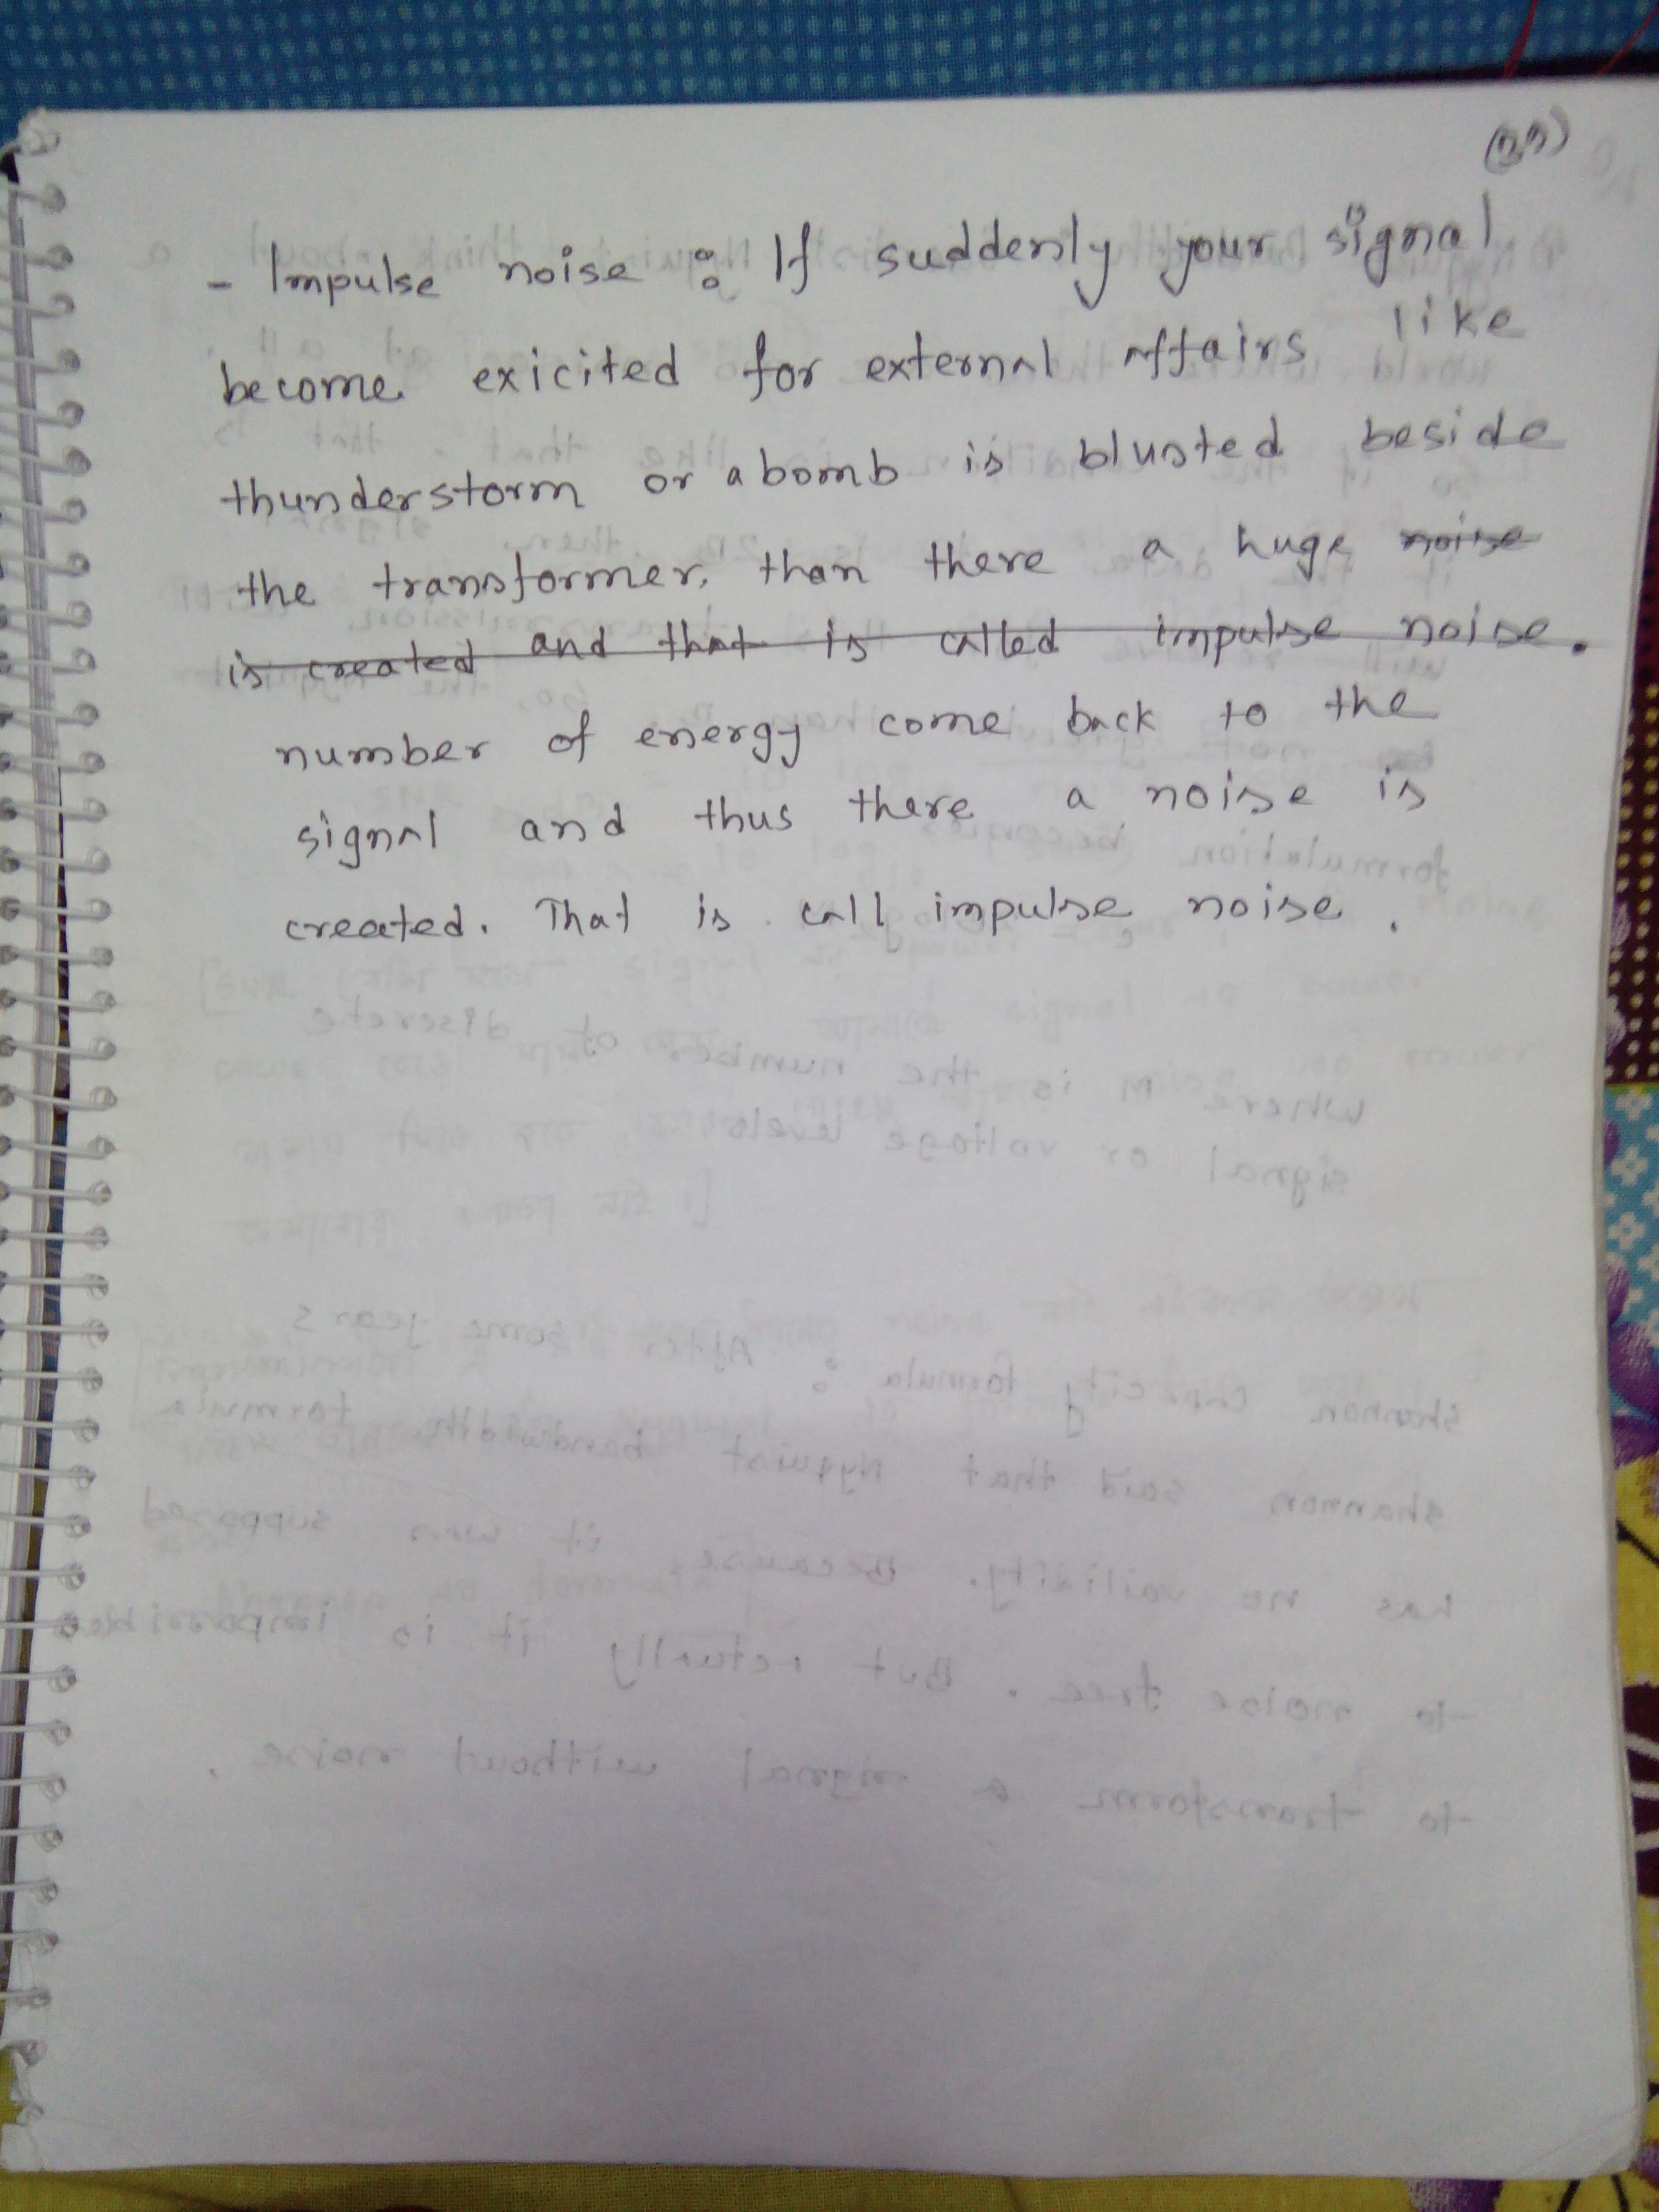 - Impulse noise : If suddenly your signal
become exicited for external affairs like
thunderstorm or a bomb is blusted beside
the transformer, than there a huge noise
is created and that is called impulse noise.
number of energy come back to the
signal and thus there a noise is
created. That is call impulse noise.